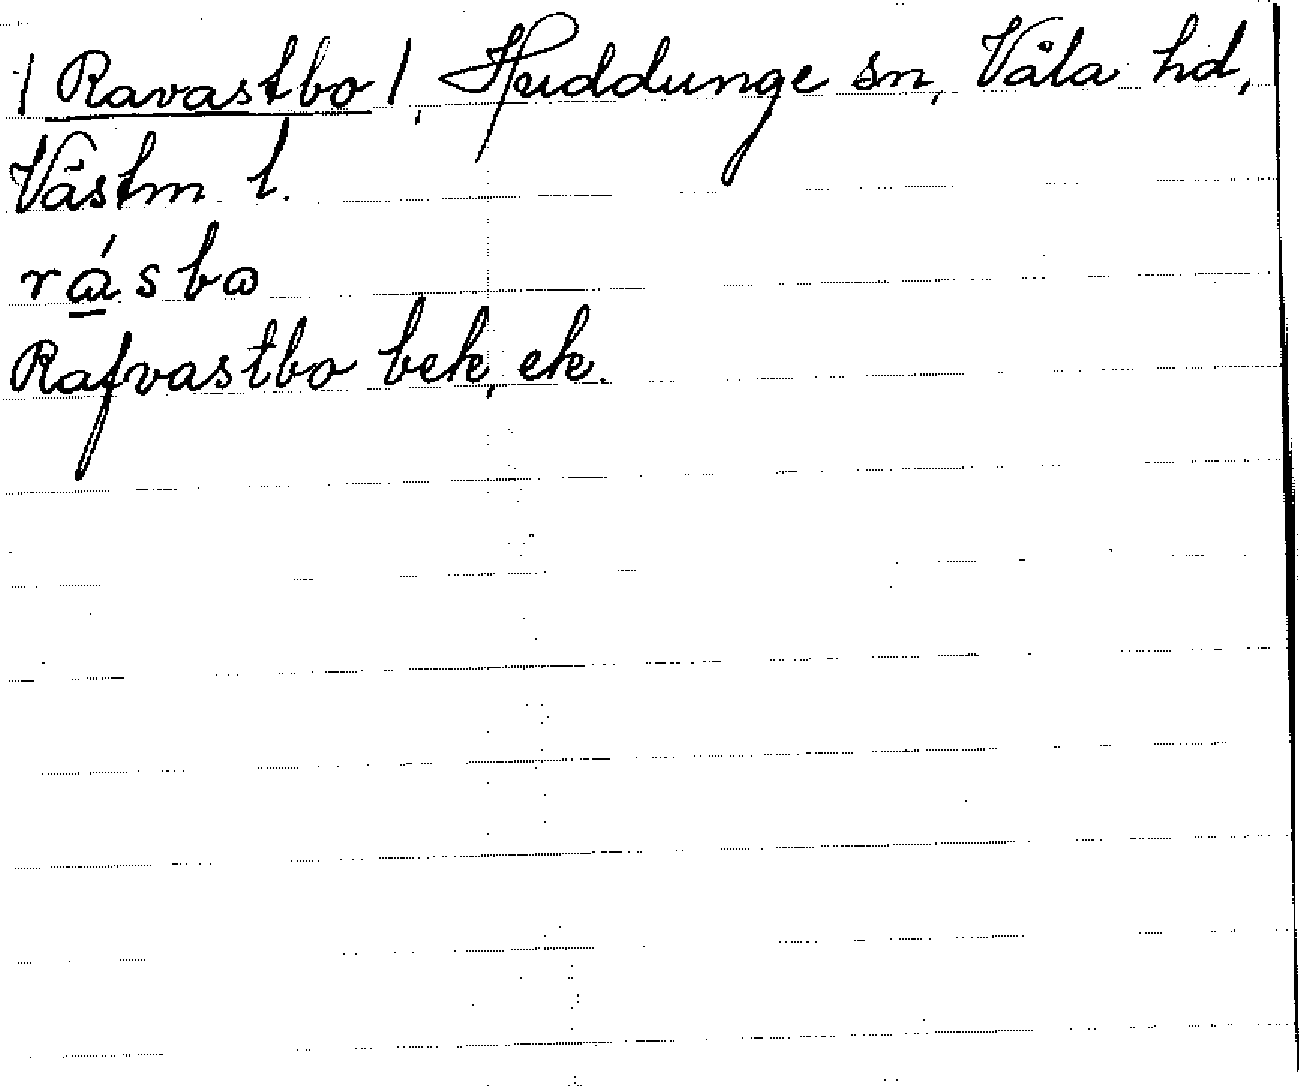 /Ravastbo/, Huddunge sn, Våla hd,
Västm l.
rásbɷ
Rafvastbo bek, ek.